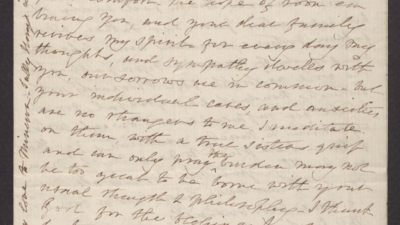 comfort the hope of soon em
bracing you, and your dear family
revives my spirits for every day my
thoughts, and sympathy dwells with
you, our sorrows are in common but
your individual cares and anxieties
are no strangers to me I meditate
on them, with a true sisters grief
and can only pray the burden may not
be too great to be borne with your
usual strength & philosophy - I thank
God for the
love to Minerva, Sally